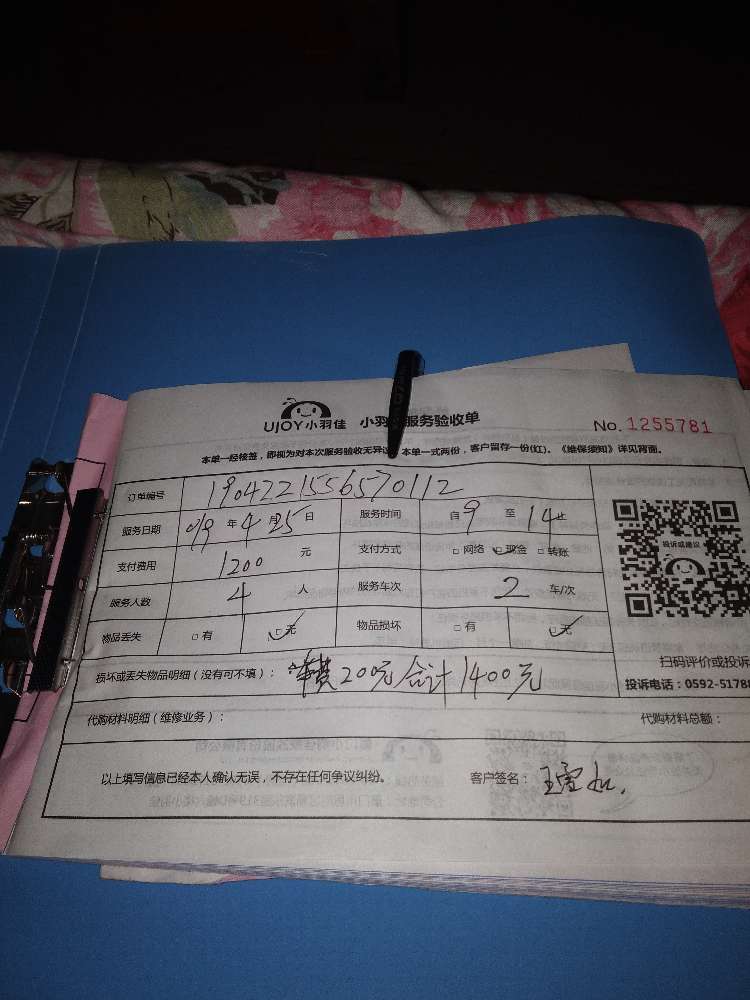 UJOY小羽佳 小羽 服务验收单 No.1255781
本单一经核签，即视为对本次服务验收无异议 本单一式两份，客户留存一份(红)。《维保须知》详见背面。
订单编号 1904221556570112
服务日期 019 年 4 月 25 日 服务时间 自 9 至 14 止
支付费用 1200 元 支付方式 □ 网络 □ 现金 □ 转账
服务人数 4 人 服务车次 2 车/次
物品丢失 □ 有 □ 无 物品损坏 □ 有 □ 无
投诉或建议
扫码评价或投诉
损坏或丢失物品明细（没有可不填）： 费200元 合计1400元
投诉电话：0592-5178
代购材料明细（维修业务）： 代购材料总额：
以上填写信息已经本人确认无误，不存在任何争议纠纷。 客户签名：